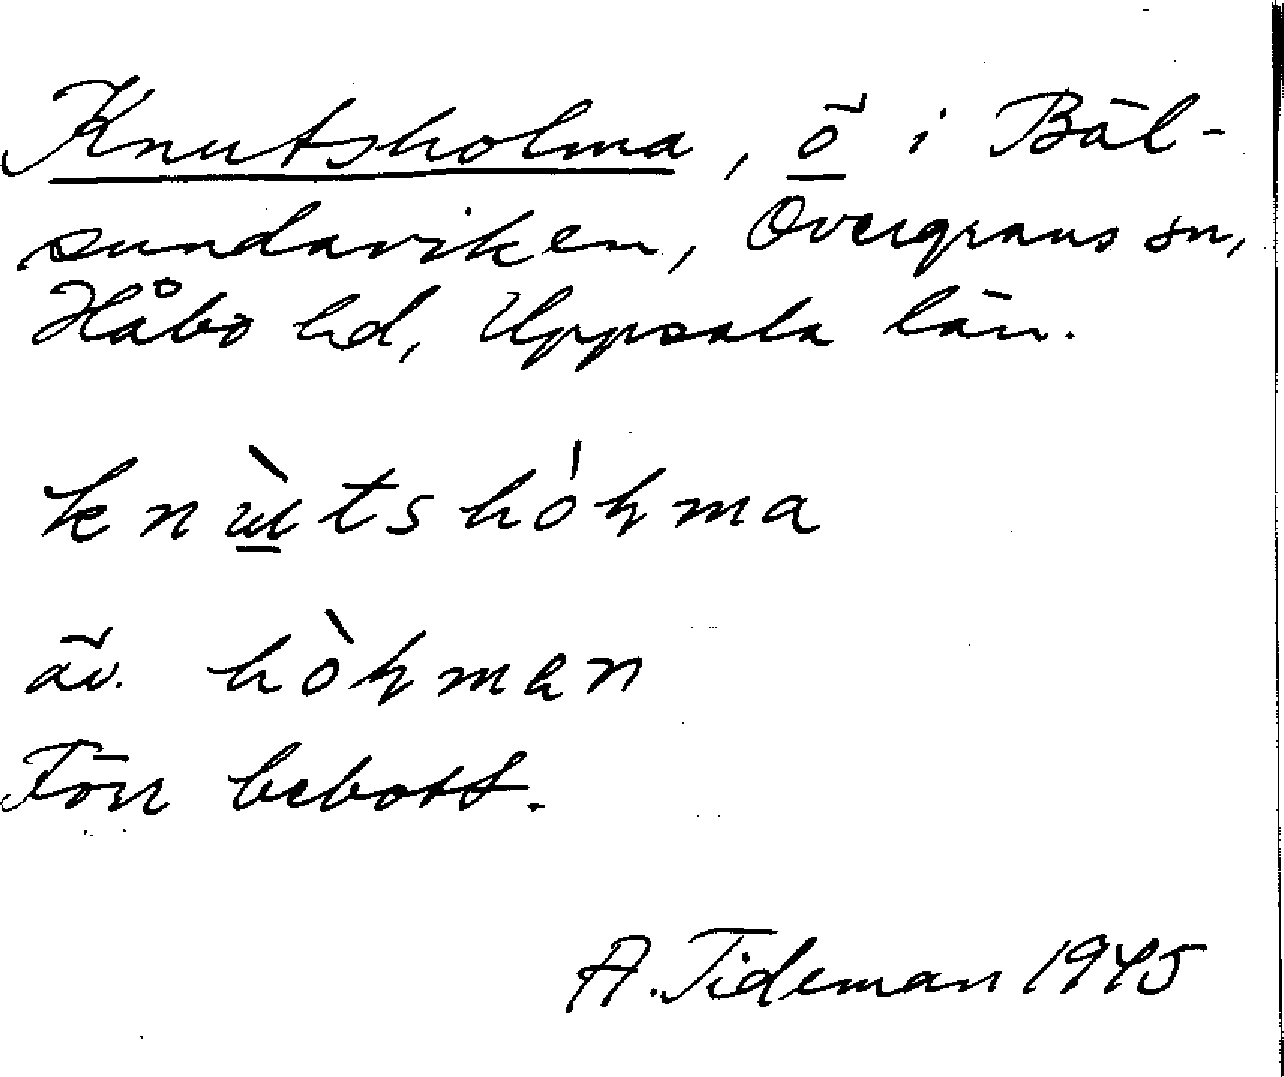 Knutsholma, ö i Bål-
sundaviken, Övergrans sn,
Håbo hd, Uppsala län.
äv.
Förr bebott.
A. Tideman 1945